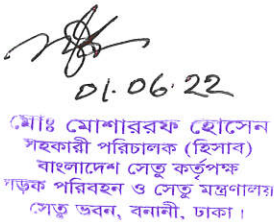 01.06.22
মোঃ মোশাররফ হোসেন
সহকারী পরিচালক (হিসাব)
বাংলাদেশ সেতু কর্তৃপক্ষ
সড়ক পরিবহন ও সেতু মন্ত্রণালয়
সেতু ভবন, বনানী, ঢাকা।